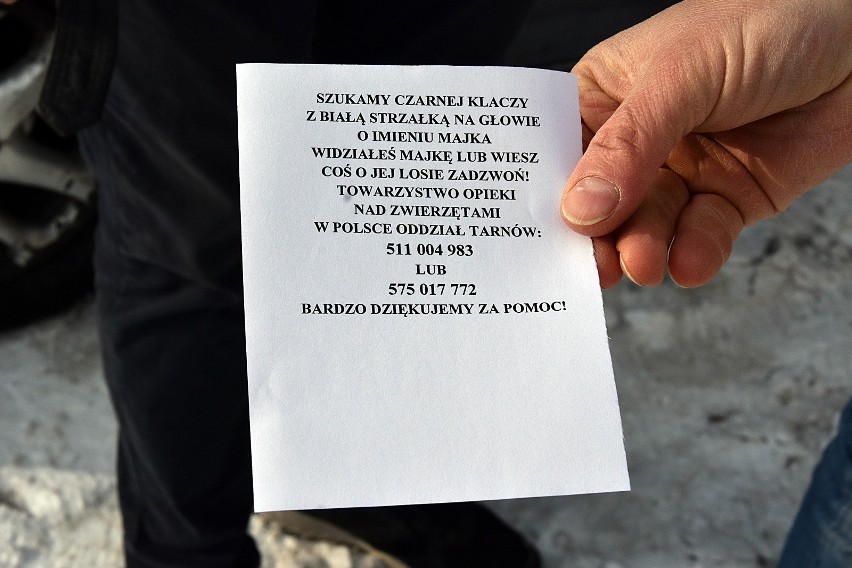 SZUKAMY CZARNEJ KLACZY
Z BIAŁĄ STRZAŁKĄ NA GŁOWIE
O IMIENIU MAJKA
WIDZIAŁEŚ MAJKĘ LUB WIESZ
COŚ O JEJ LOSIE ZADZWOŃ!
TOWARZYSTWO OPIEKI
NAD ZWIERZĘTAMI
W POLSCE ODDZIAŁ TARNÓW:
511 004 983
LUB
575 017 772
BARDZO DZIĘKUJEMY ZA POMOC!